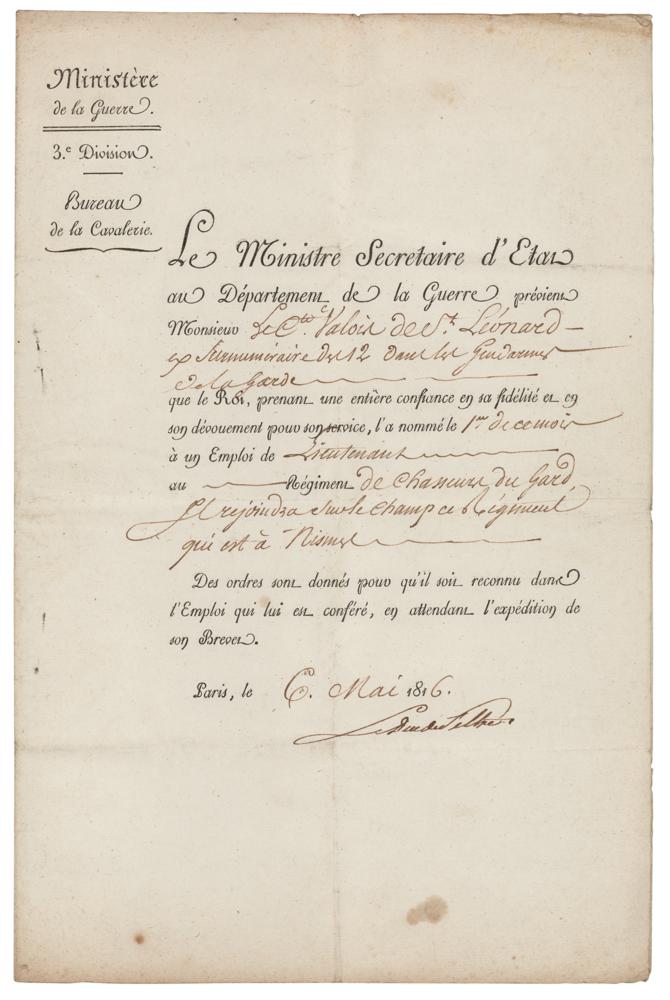 Ministère
de la Guerre.
3.e Division.
Bureau
de la Cavalerie.
Le Ministre Secretaire d'Etat
au Département de la Guerre prévient
Monsieur Le Cte. Valois de St. Léonard
ex Surnuméraire des 12 dans les Gendarmes
de la Garde
que le Roi, prenant une entière confiance en sa fidélité et en
son dévouement pour son service, l'a nommé le 1er de ce mois
à un Emploi de Lieutenant
au Régiment de Chasseurs du Gard,
Il rejoindra sur le champ ce Régiment
qui est à Nismes
Des ordres sont donnés pour qu'il soit reconnu dans
l'Emploi qui lui est conféré, en attendant l'expédition de
son Brevet.
Paris, le 6. Mai 1816.
Le Duc de Feltre